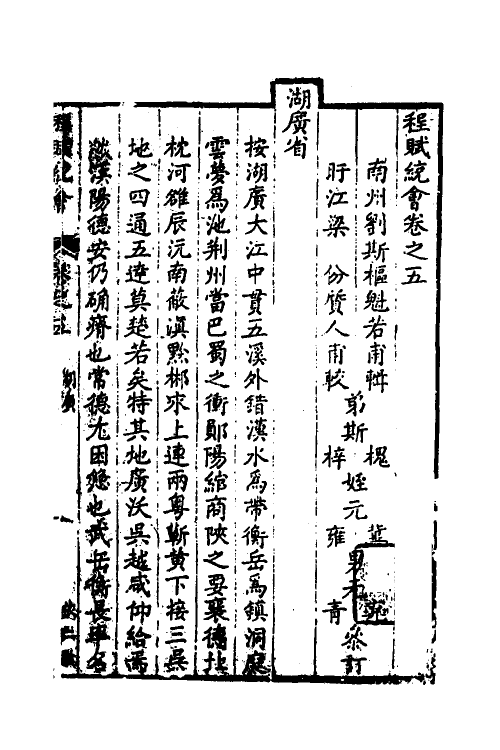 程賦統會卷之五
南州劉斯樞魁若甫輯
盱江梁 份質人甫較
弟斯槐 梓
姪元 雍
男 青 叅訂
湖廣省
按湖廣大江中貫五溪外錯漢水爲帶衡岳爲鎮洞庭
雲夢爲池荆州當巴蜀之衝鄖陽綰商陜之要襄德扼
枕河雒辰沅南蔽滇黔郴永上連兩粤蘄黄下接三吳
地之四通五達莫楚若矣特其地廣沃吳越咸仰給焉
漢陽德安仍磽瘠也常德尤困憊也武岳衡長舉名
程賦統會
卷之五
湖廣
一